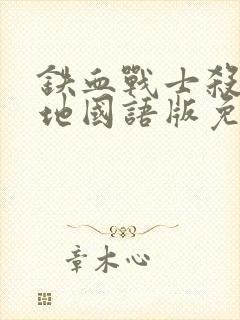 鐵血戰士殺
地國語版免
章木心